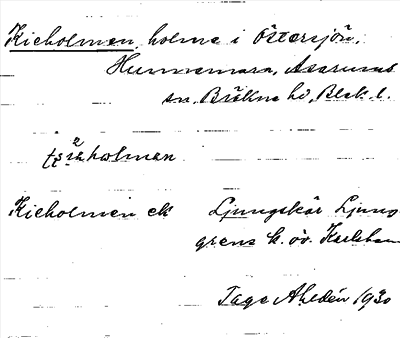 Kieholmen, holme i Östersjön.
Hunnemara, Asarums
sn. Bräkne hd, Blek. l.
holmen
Kieholmen ek Ljungskär Ljung
grens k. öv. Karlshamn
Tage Ahldén 1930